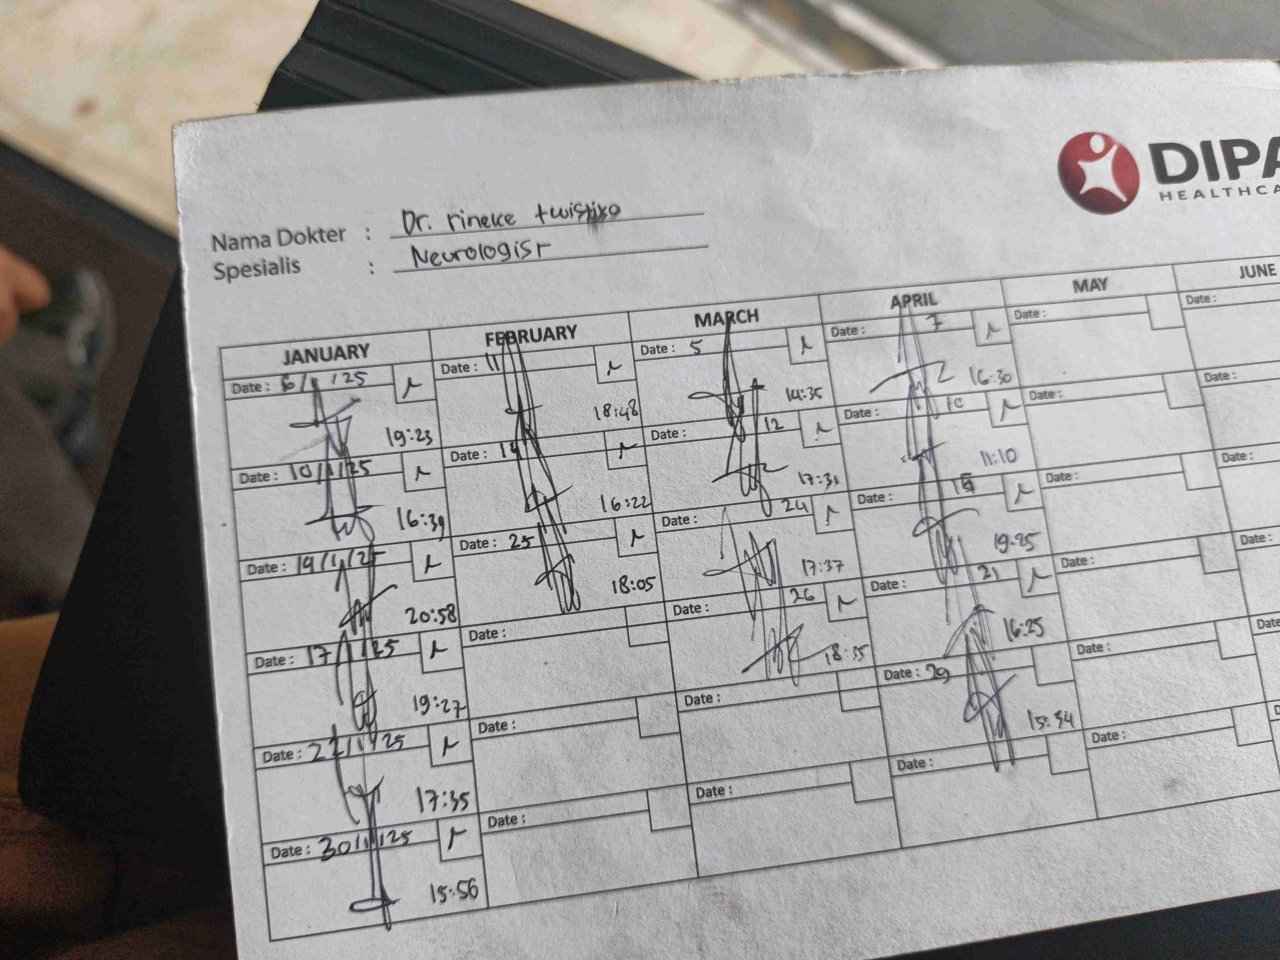 DIPA
HEALTHCA
Nama Dokter : Dr. rineke twistixo
Spesialis : Neurologist
JANUARY FEBRUARY MARCH APRIL MAY JUNE
Date : 6/1/25
19:23
Date : 10/1/25
16:39
Date : 14/1/25
20:58
Date : 17/1/25
19:27
Date : 22/1/25
17:35
Date : 30/1/25
15:56
Date : 11
18:48
Date : 14
16:22
Date : 25
18:05
Date :
Date :
Date :
Date : 5
14:35
Date : 12
17:31
Date : 24
17:37
Date : 26
18:15
Date :
Date :
Date : 7
16:30
Date : 10
11:10
Date :
19:25
Date : 21
16:25
Date : 29
15:54
Date :
Date :
Date :
Date :
Date :
Date :
Date :
Date :
Date :
Date :
Date :
Date